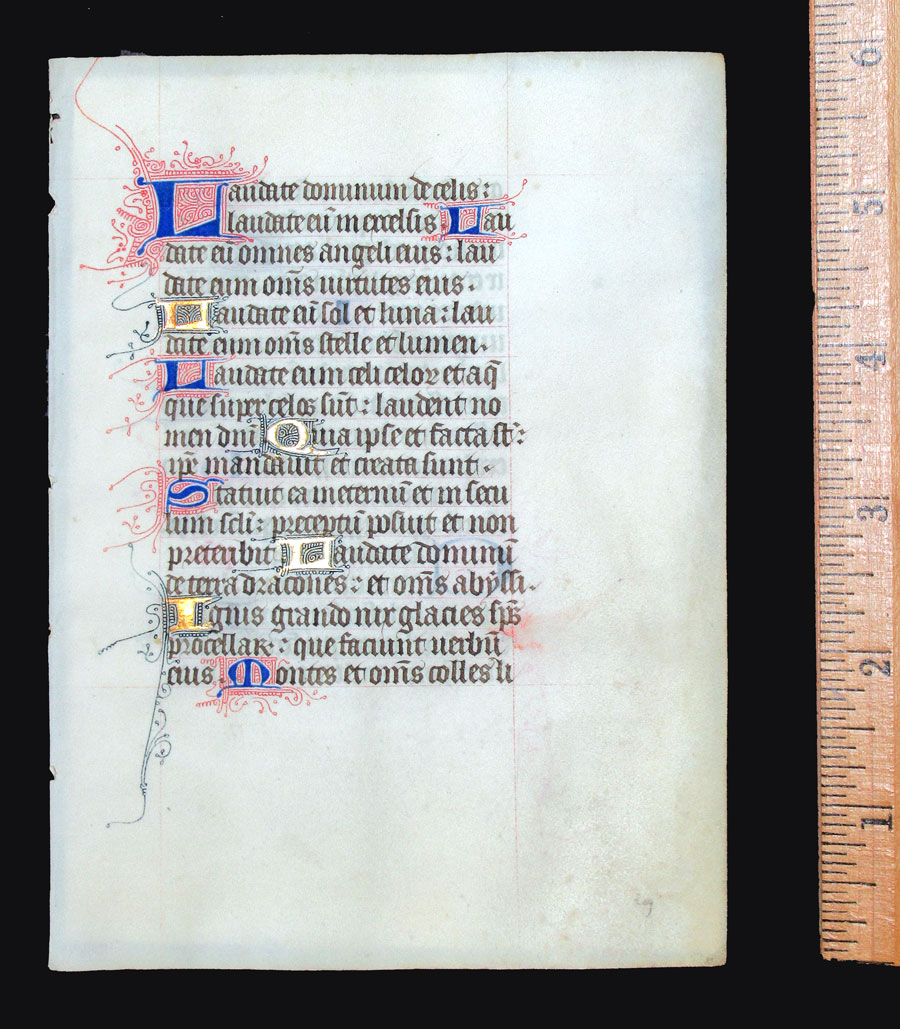 Laudate dominum de celis:
laudate eū in excelsis Lau
date eū omnes angeli eius: lau
date eum om̄s uirtutes eius.
Laudate eū sol et luna: lau
date eum om̄s stelle et lumen.
Laudate eum celi celoꝝ et aq̄
que super celos sūt: laudent no
men dn̄i Quia ipse et facta st̄:
ip̄e mandauit et creata sunt.
Statuit ea in eternū et in secu
lum scl̄i: preceptū posuit et non
preteribit Laudate dominū
de terra dracones: et om̄s abyssi.
Ignis grando nix glacies sp̄s
procellaꝝ: que faciunt uerbū
eius. Montes et om̄s colles li
6
5
4
3
2
1